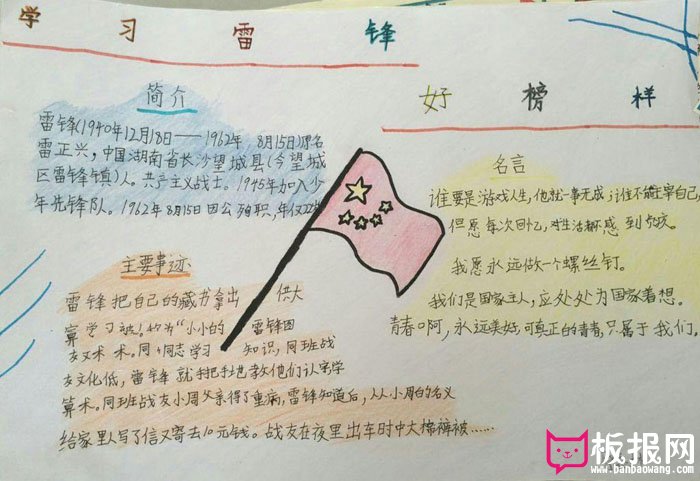 学习雷锋
好榜样
简介
雷锋(1940年12月18日——1962年8月15日)原名
雷正兴,中国湖南省长沙望城县(今望城
区雷锋镇)人。共产主义战士。1945年加入少
年先锋队。1962年8月15日因公殉职,年仅22
主要事迹
雷锋把自己的藏书拿出 供大
算学习 称为“小小的 雷锋图
友术 术。同 同志学习 知识,同班战
友文化低,雷锋就手把手地教他们认字学
算术。同班战友小周父亲得了重病,雷锋知道后,从小周的名义
给家里写了信又寄去10元钱。战友在夜里出车时中大棉裤被……
名言
谁要是游戏人生,他就一事无成;谁不能主宰自己,
但愿每次回忆,对生活都不感到负疚。
我愿永远做一个螺丝钉。
我们是国家主人,应处处为国家着想。
青春啊,永远美好,可真正的青春,只属于我们。
板报网
www.banbaowang.com